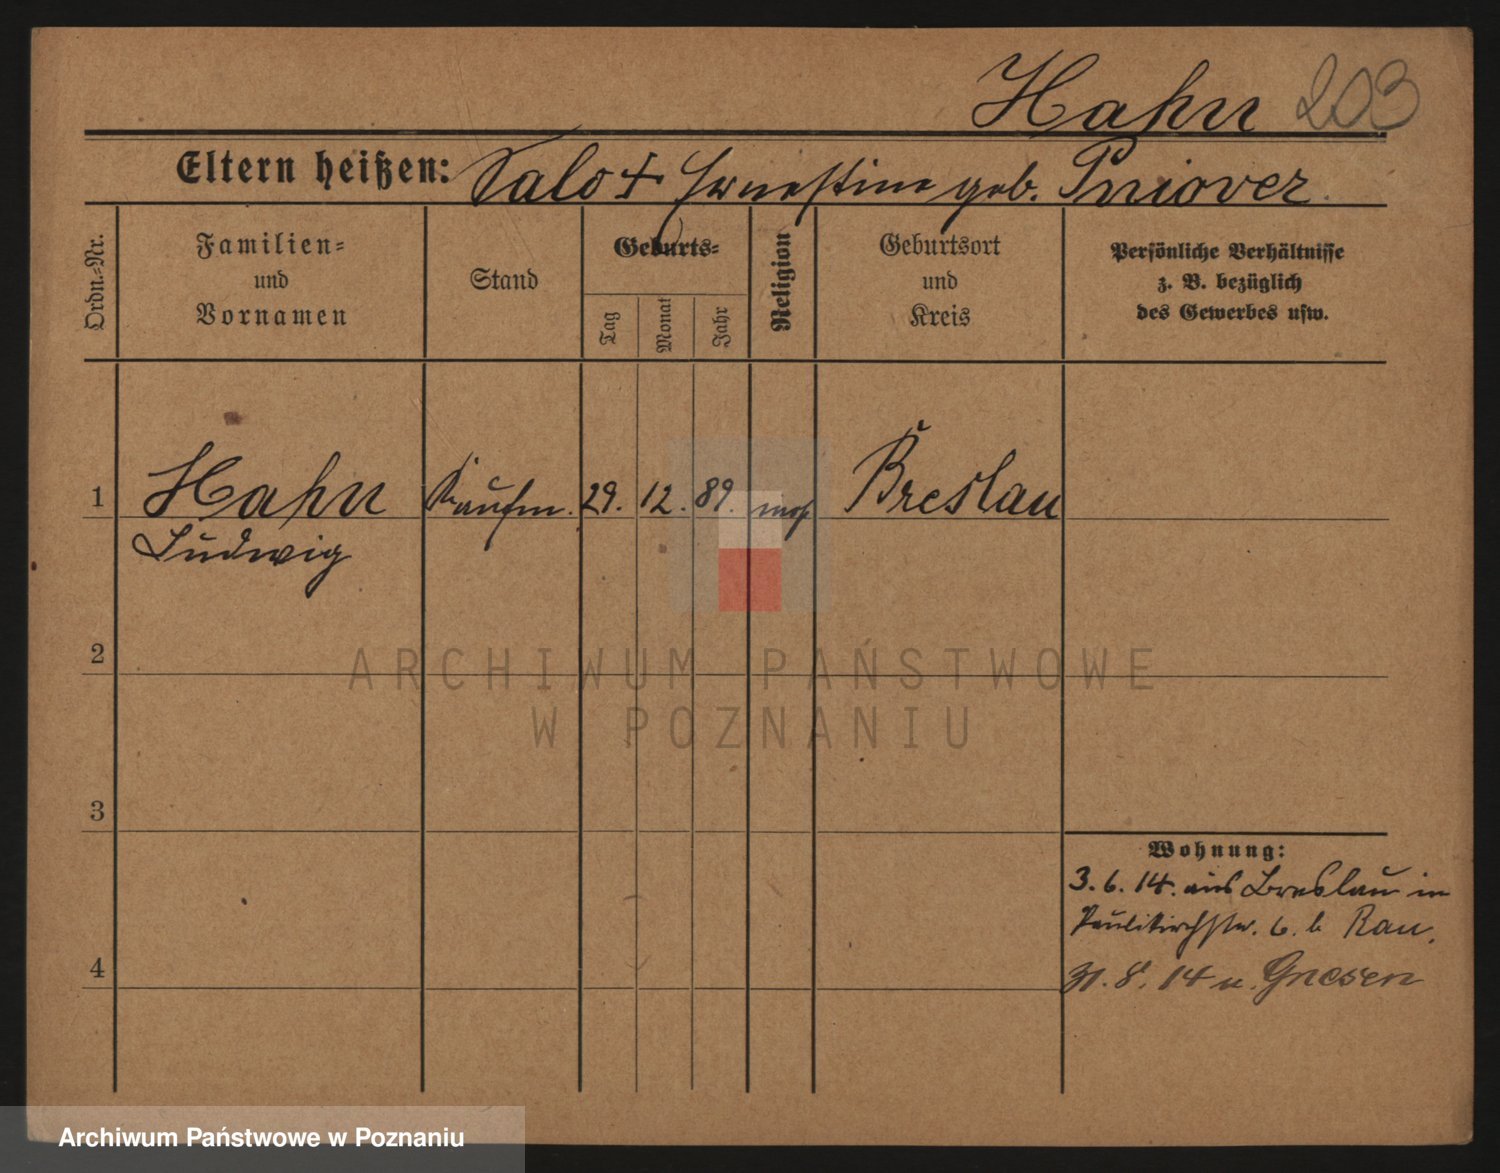 Hahn 203
Eltern heißen: Salo + Ernestine geb. Pniover
Ordn.-Nr.
Familien-
und
Vornamen
Stand
Geburts-
Tag
Monat
Jahr
Religion
Geburtsort
und
Kreis
Persönliche Verhältnisse
z. B. bezüglich
des Gewerbes usw.
1 Hahn Kaufm. 29. 12. 89. mos. Breslau
Ludwig
2
ARCHIWUM PAŃSTWOWE
W POZNANIU
3
Wohnung:
3. 6. 14. aus Breslau in
Paulikirchstr. 6. b Rau.
4
31. 8. 14 n. Gnesen
Archiwum Państwowe w Poznaniu